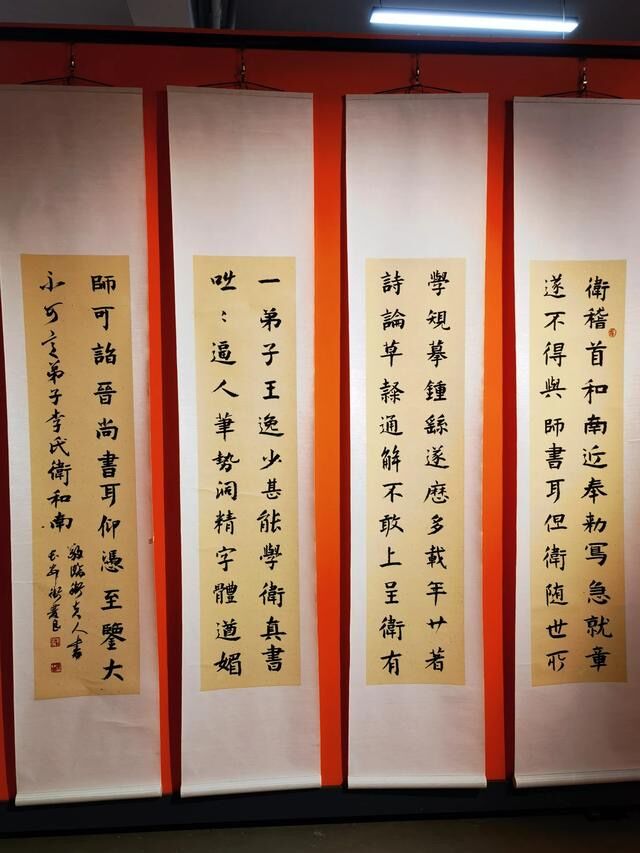 衛稽首和南近奉勅寫急就章
遂不得與師書耳但衛随世所
學規摹鍾繇遂歷多載年廿著
詩論草隸通解不敢上呈衛有
一弟子王逸少甚能學衛真書
咄〻逼人筆勢洞精字體遒媚
師可詣晉尚書耳仰憑至鑒大
不可言弟子李氏衛和南
臨衛夫人書